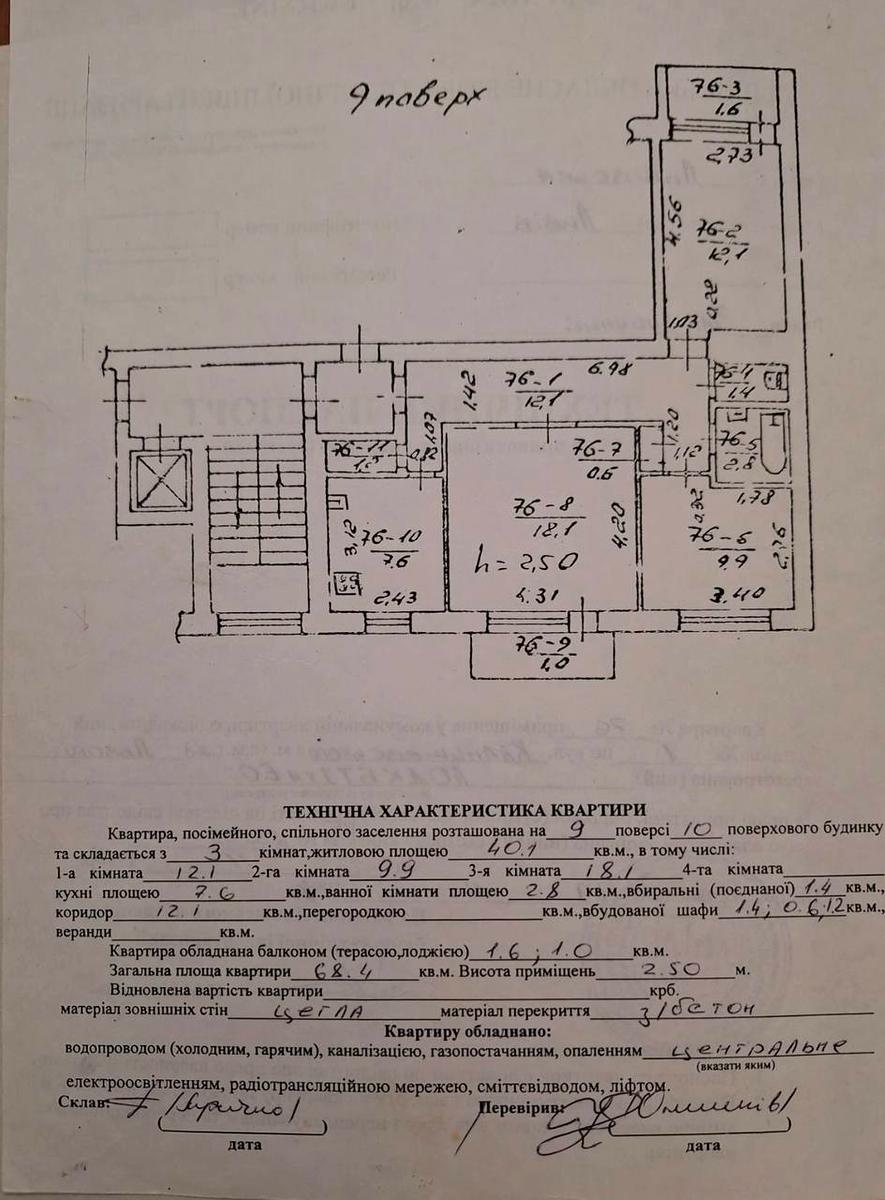 9 поверх
76-3
1.6
2,73
4.56
76-2
12,1
1,03
76-1
12,1
6.98
1,42
76-4
1.4
1,20
76-5
2,8
1,12
1,78
1,07
76-11
76-7
0.6
76-8
18,1
4,20
h = 2,50
4.31
3,12
76-10
7.6
2,43
76-6
9.9
3.40
76-9
1,0
ТЕХНІЧНА ХАРАКТЕРИСТИКА КВАРТИРИ
Квартира, посімейного, спільного заселення розташована на 9 поверсі 10 поверхового будинку
та складається з 3 кімнат,житловою площею 40.1 кв.м., в тому числі:
1-а кімната 12.1 2-га кімната 9.9 3-я кімната 18.1 4-та кімната
кухні площею 7.6 кв.м.,ванної кімнати площею 2.8 кв.м.,вбиральні (поєднаної) 1.4 кв.м.,
коридор 12.1 кв.м.,перегородкою кв.м.,вбудованої шафи 1.4; 0.6; 1.2 кв.м.,
веранди кв.м.
Квартира обладнана балконом (терасою,лоджією) 1.6; 1.0 кв.м.
Загальна площа квартири 68.4 кв.м. Висота приміщень 2.50 м.
Відновлена вартість квартири крб.
матеріал зовнішніх стін цегла матеріал перекриття з/бетон
Квартиру обладнано:
водопроводом (холодним, гарячим), каналізацією, газопостачанням, опаленням центральне
(вказати яким)
електроосвітленням, радіотрансляційною мережею, сміттєвідводом, ліфтом.
Склав: Перевірив:
дата дата